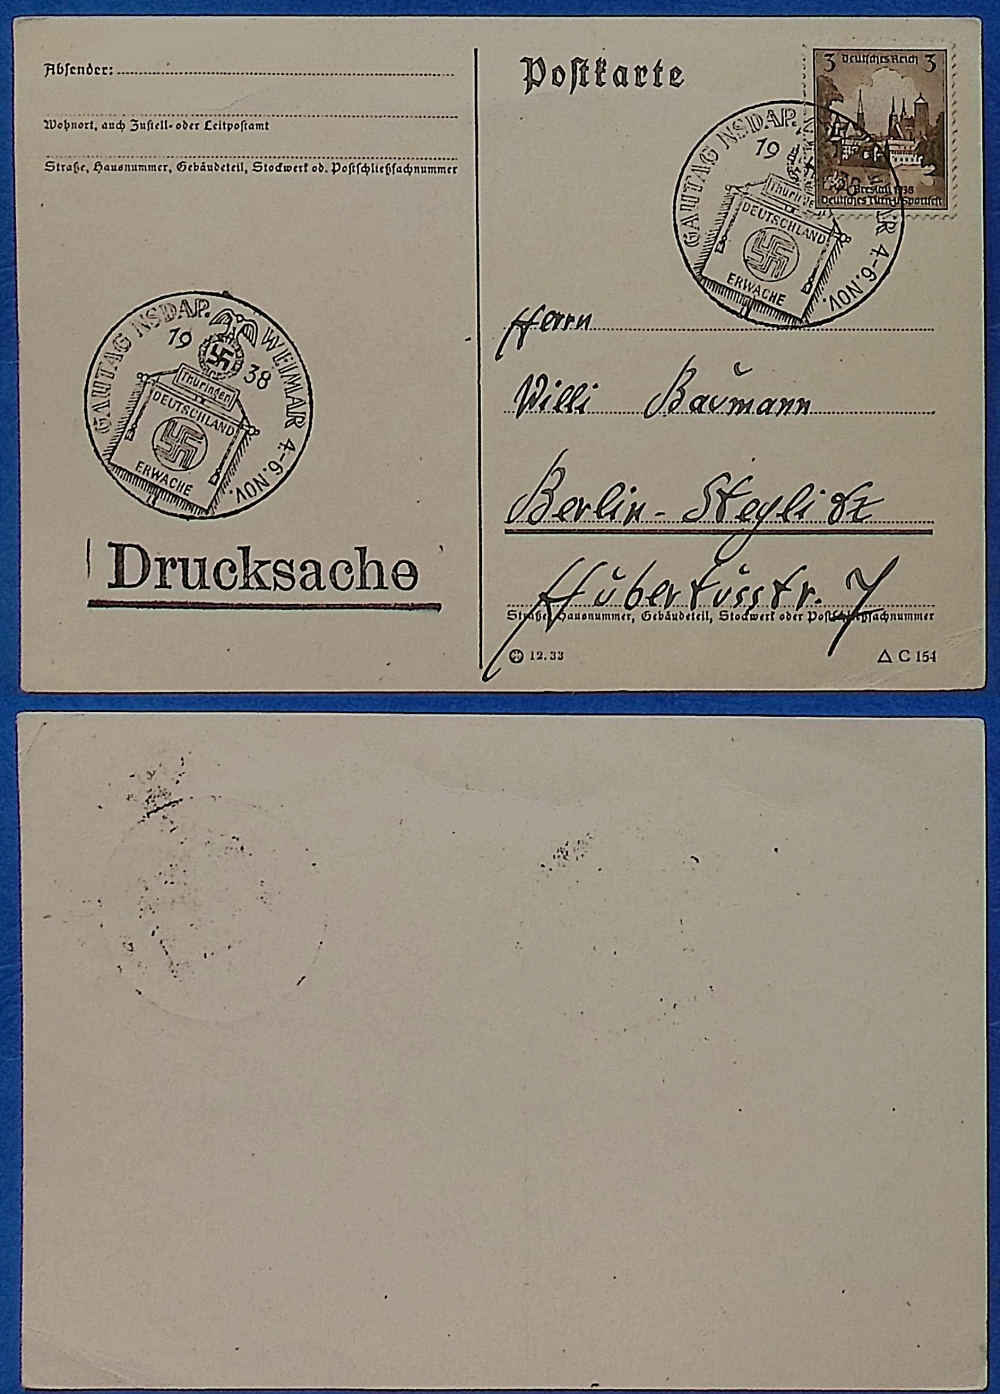 Absender:
Wohnort, auch Zustell- oder Leitpostamt
Straße, Hausnummer, Gebäudeteil, Stockwerk od. Postschließfachnummer
Postkarte
3 Deutsches Reich 3
Breslau 1938
Deutsches Turn-u. Sportfest
GAUTAG NSDAP. WEIMAR 4.-6. NOV.
19 38
Thüringen
DEUTSCHLAND
ERWACHE
GAUTAG NSDAP. WEIMAR 4.-6. NOV.
19 38
Thüringen
DEUTSCHLAND
ERWACHE
Drucksache
Herrn
Willi Baumann
Berlin-Steglitz
Hubertusstr. 7
Straße, Hausnummer, Gebäudeteil, Stockwerk oder Postschließfachnummer
12.33
C 154